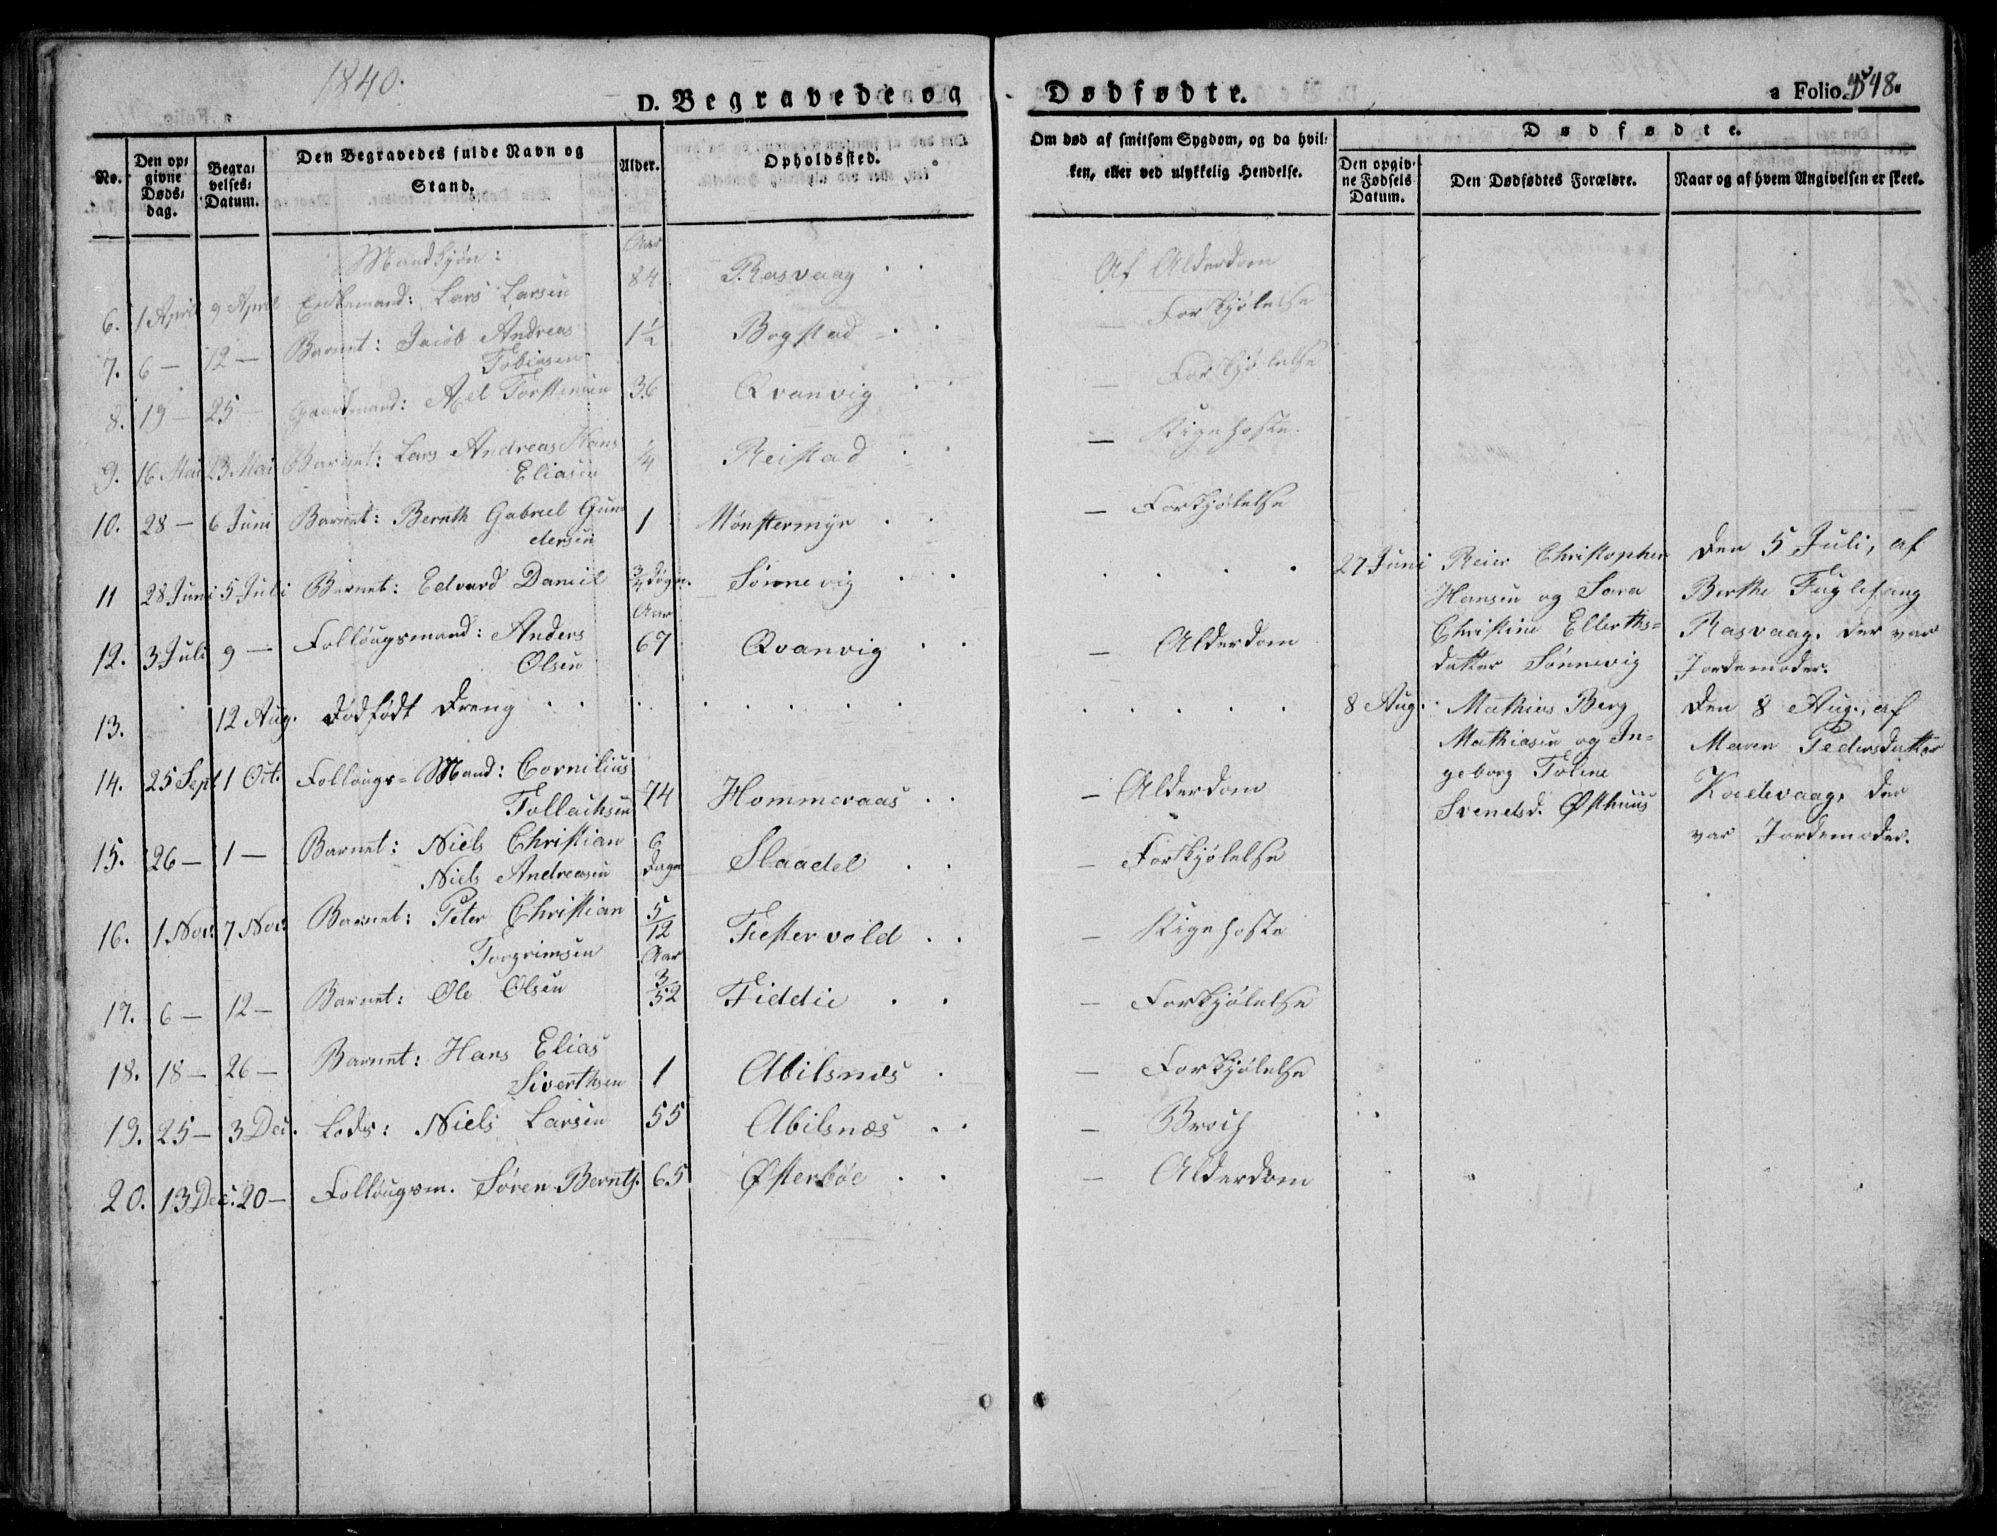 1840.
D. Begravede og Dødfødte. a Folio 348.
No.
Den op: givne Døds: dag.
Begra: velses: Datum.
Den Begravedes fulde Navn og Stand.
Alder.
Opholdssted.
Om død af smitsom Sygdom, og da hvil: ken, eller ved ulykkelig Hendelse.
Dødfødte.
Den opgiv: ne Fødsels Datum.
Den Dødfødtes Forældre.
Naar og af hvem Angivelsen er skeet.
Mandkjøn: Aar
6. 1 April 9 April Enkemand: Lars Larsen 84 Rasvaag Af Alderdom
7. 6 — 12 — Barnet: Jacob Andreas 1½ Bogstad — Forkjølelse
Tobiasen
8. 19 — 25 — Gaardmand: Axel Torstensen 36 Qvanvig — Forkjølelse
9. 16 Mai 23 Mai Barnet: Lars Andreas Hans ¼ Reistad — Kighoste
Eliasen
10. 28 — 6 Juni Barnet: Bernth Gabriel Gun 1 Mønstermyr — Forkjølelse
dersen
11 28 Juni 5 Juli Barnet: Edvard Daniel ¾ Døgn. Sønnevig 27 Juni Reier Christopher Den 5 Juli, af
Hansen og Sara Berthe Fuglesang
Aar
12. 3 Juli 9 — Follougsmand: Anders 67 Qvanvig — Alderdom Christine Ellerths= Rasvaag. Der var
Olsen datter Sønnevig Jordemoder.
13. 12 Aug. Dødfødt Dreng 8 Aug. Mathias Berg Den 8 Aug., af
Mathiasen og In= Maren Pedersdatter
14. 25 Sept 1 Oct. Follougs=Mand: Cornilius 74 Hommeraas — Alderdom geborg Toline Der
Tollachsen Svendsd. Østhuus var Jordemoder.
15. 26 — 1 — Barnet: Niels Christian 6 Dage Slaadel — Forkjølelse
Niels Andreasen
16. 1 Nov: 7 Nov: Barnet: Peter Christian 5/12 Festervold — Kighoste
Torgrimsen Aar
17. 6 — 12 — Barnet: Ole Olsen 3/52 Fiddie — Forkjølelse
18. 18 — 26 — Barnet: Hans Elias
Siverthsen 1 Abilsnæs — Forkjølelse
19. 25 — 3 Dec. Lods: Niels Larsen 55 Abilsnæs — Broch
20. 13 Dec: 20 — Follougsm. Søren Bernts. 65 Østerbøe — Alderdom